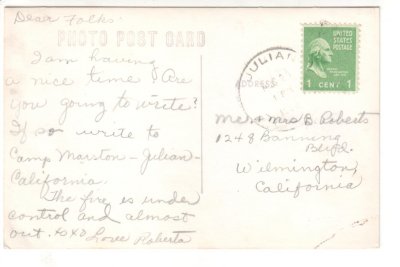 Dear Folks:
PHOTO POST CARD
I am having
a nice time. Are
you going to write?
If so write to
Camp Marston - Julian -
California.
The fire is under
control and almost
out. xoxo Love Roberta
JULIAN
ADDRESS
UNITED STATES
POSTAGE
1 CENT 1
Mr + Mrs B. Roberts
1248 Banning
Blvd.
Wilmington,
California